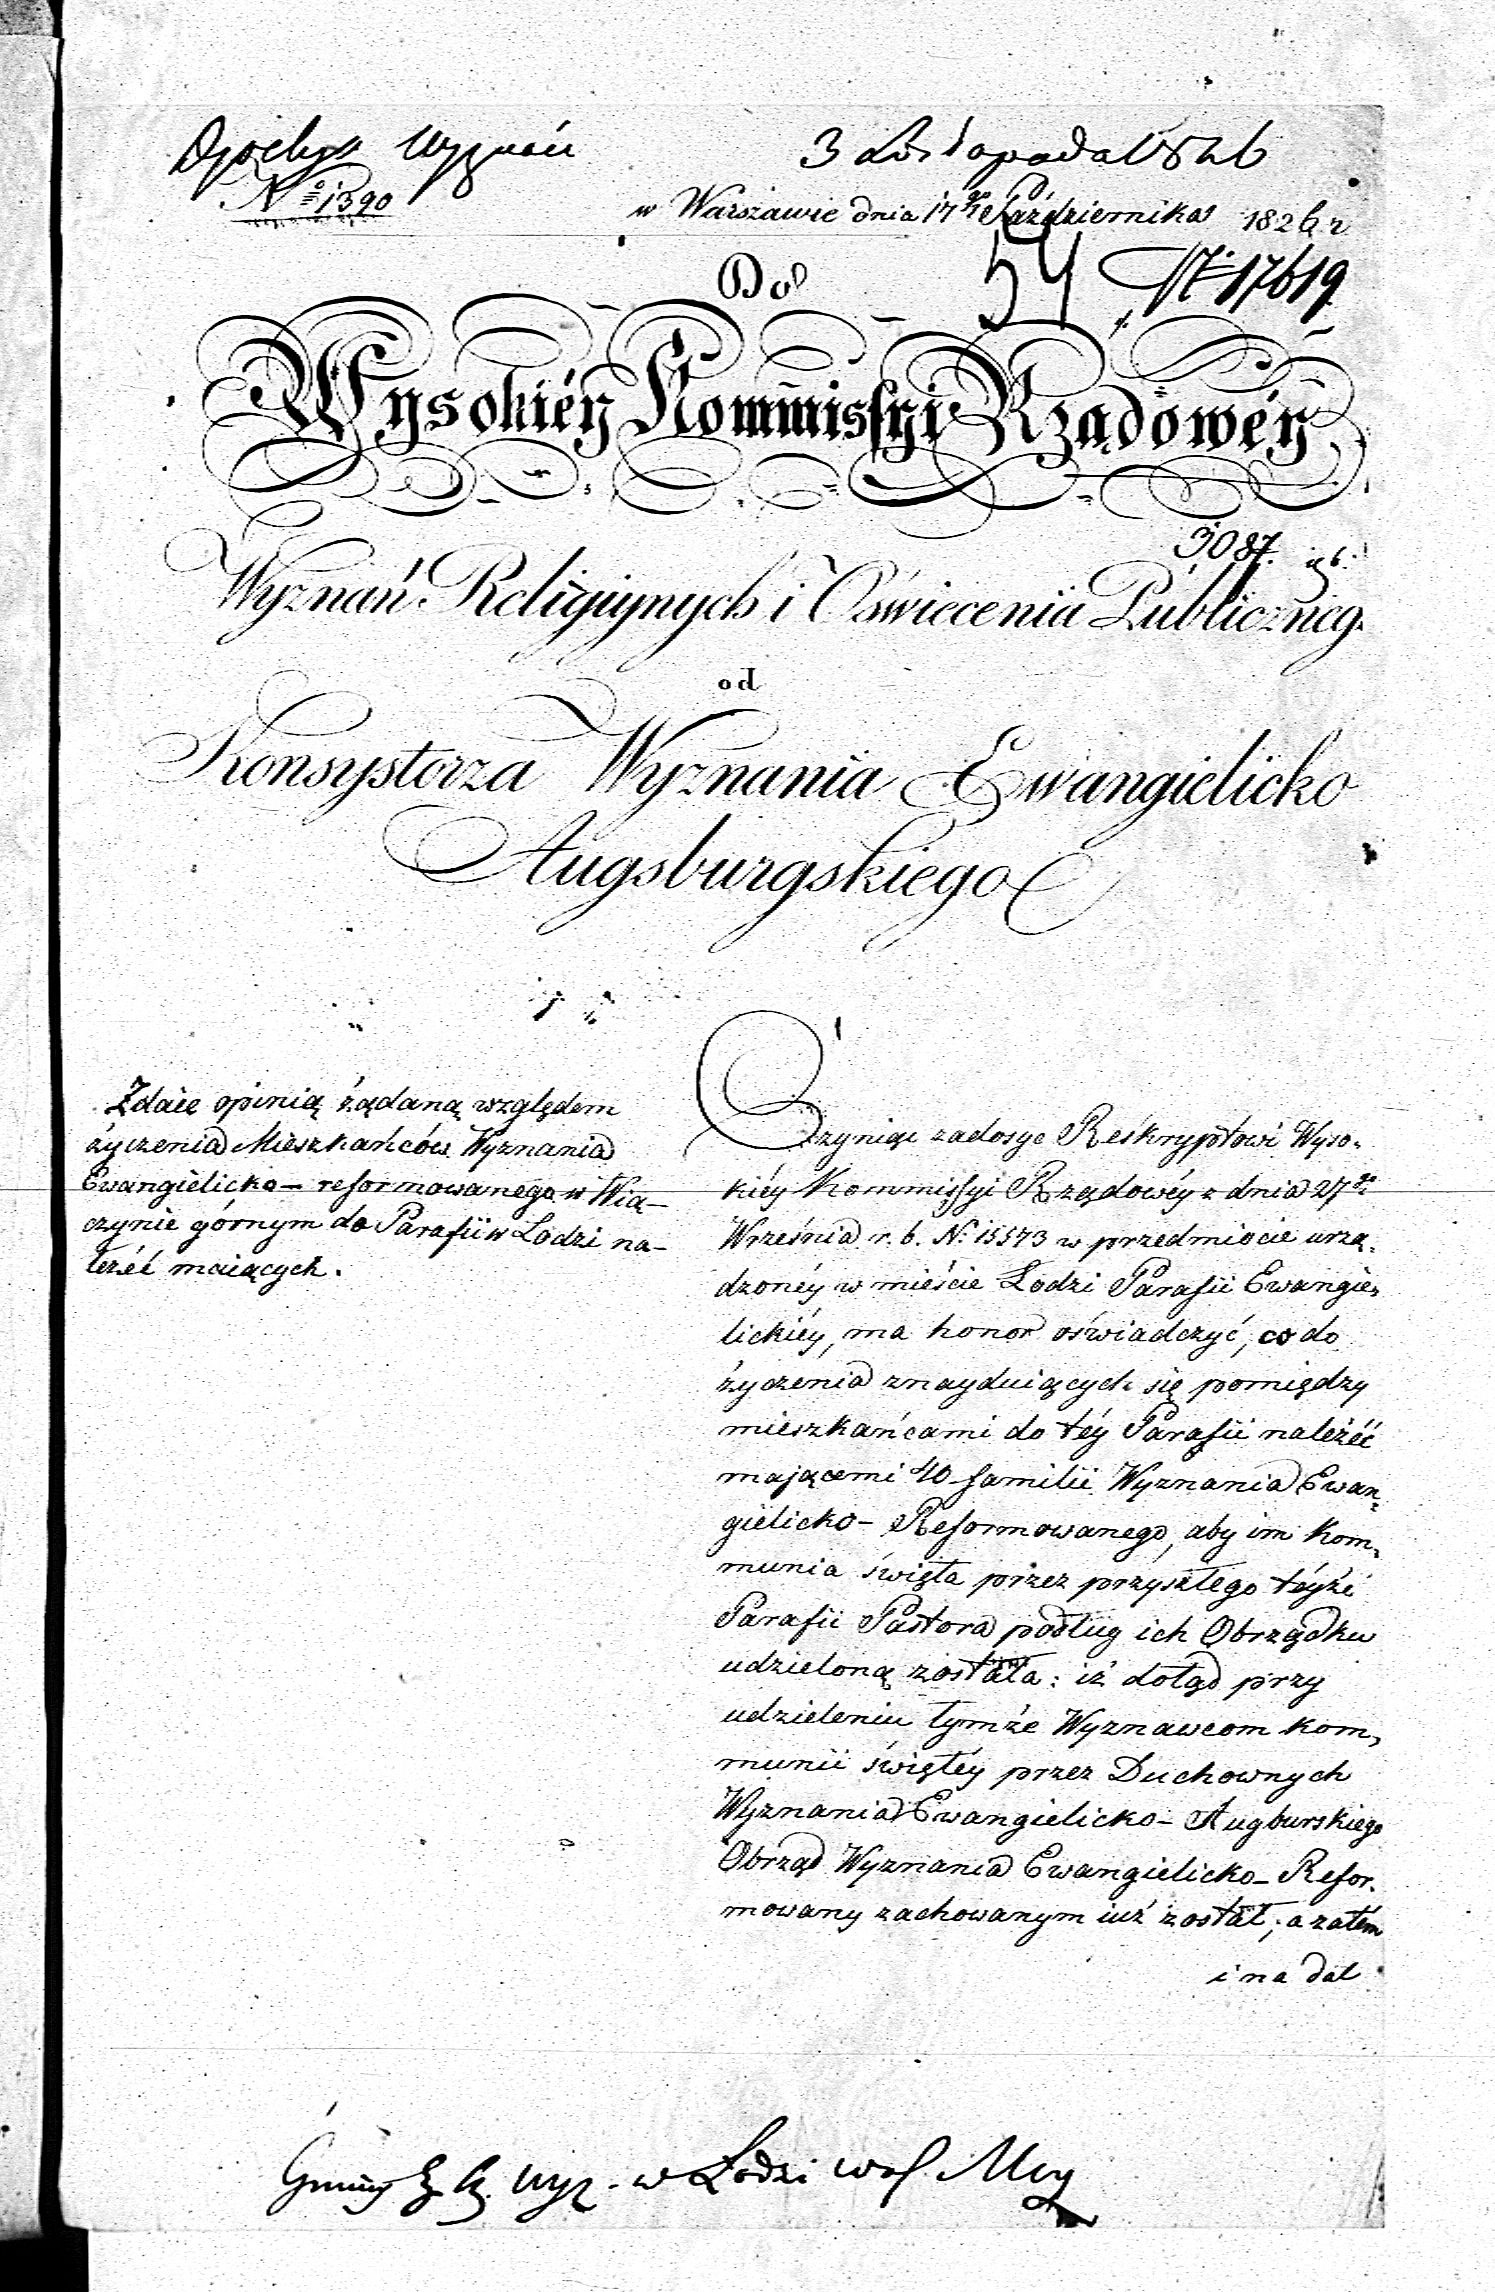 Wyznań
No 1390
3 Listopada 1826
w Warszawie dnia 17go Października 1826 r
Do
54 N. 17619
Wysokiéy Kommissyi Rządowéy
3087.
Wyznań Religiynych i Oświecenia Publiczneg.
od
Konsystorza Wyznania Ewangielicko
Augsburgskiego
Zdaie opinią żądaną względem
życzenia Mieszkańców Wyznania
Ewangielicko - reformowanego w Wią-
czynie górnym do Parafii w Lodzi na-
leżéć maiących.
Czyniąc zadosyc Reskryptowi Wyso-
kiéy Kommissyi Rządowéy z dnia 27go
Września r. b. N: 15573 w przedmiocie urzą-
dzonéy w mieście Łodzi Parafii Ewangie-
lickiéy, ma honor oświadczyć, co do
życzenia znayduiących się pomiędzy
mieszkańcami do téy Parafii należéć
mającemi 40 familii Wyznania Ewan-
gielicko - Reformowanego, aby im Kom-
munia święta przez przyszłego téyże
Parafii Pastora podług ich Obrządku
udzieloną została: iż dotąd przy
udzieleniu tymże Wyznawcom kom-
munii świętéy przez Duchownych
Wyznania Ewangielicko - Augburskiego
Obrząd Wyznania Ewangielicko - Refor-
mowany zachowanym iuż został; a zatém
i na dal
Gminy wyz. w Łodzi